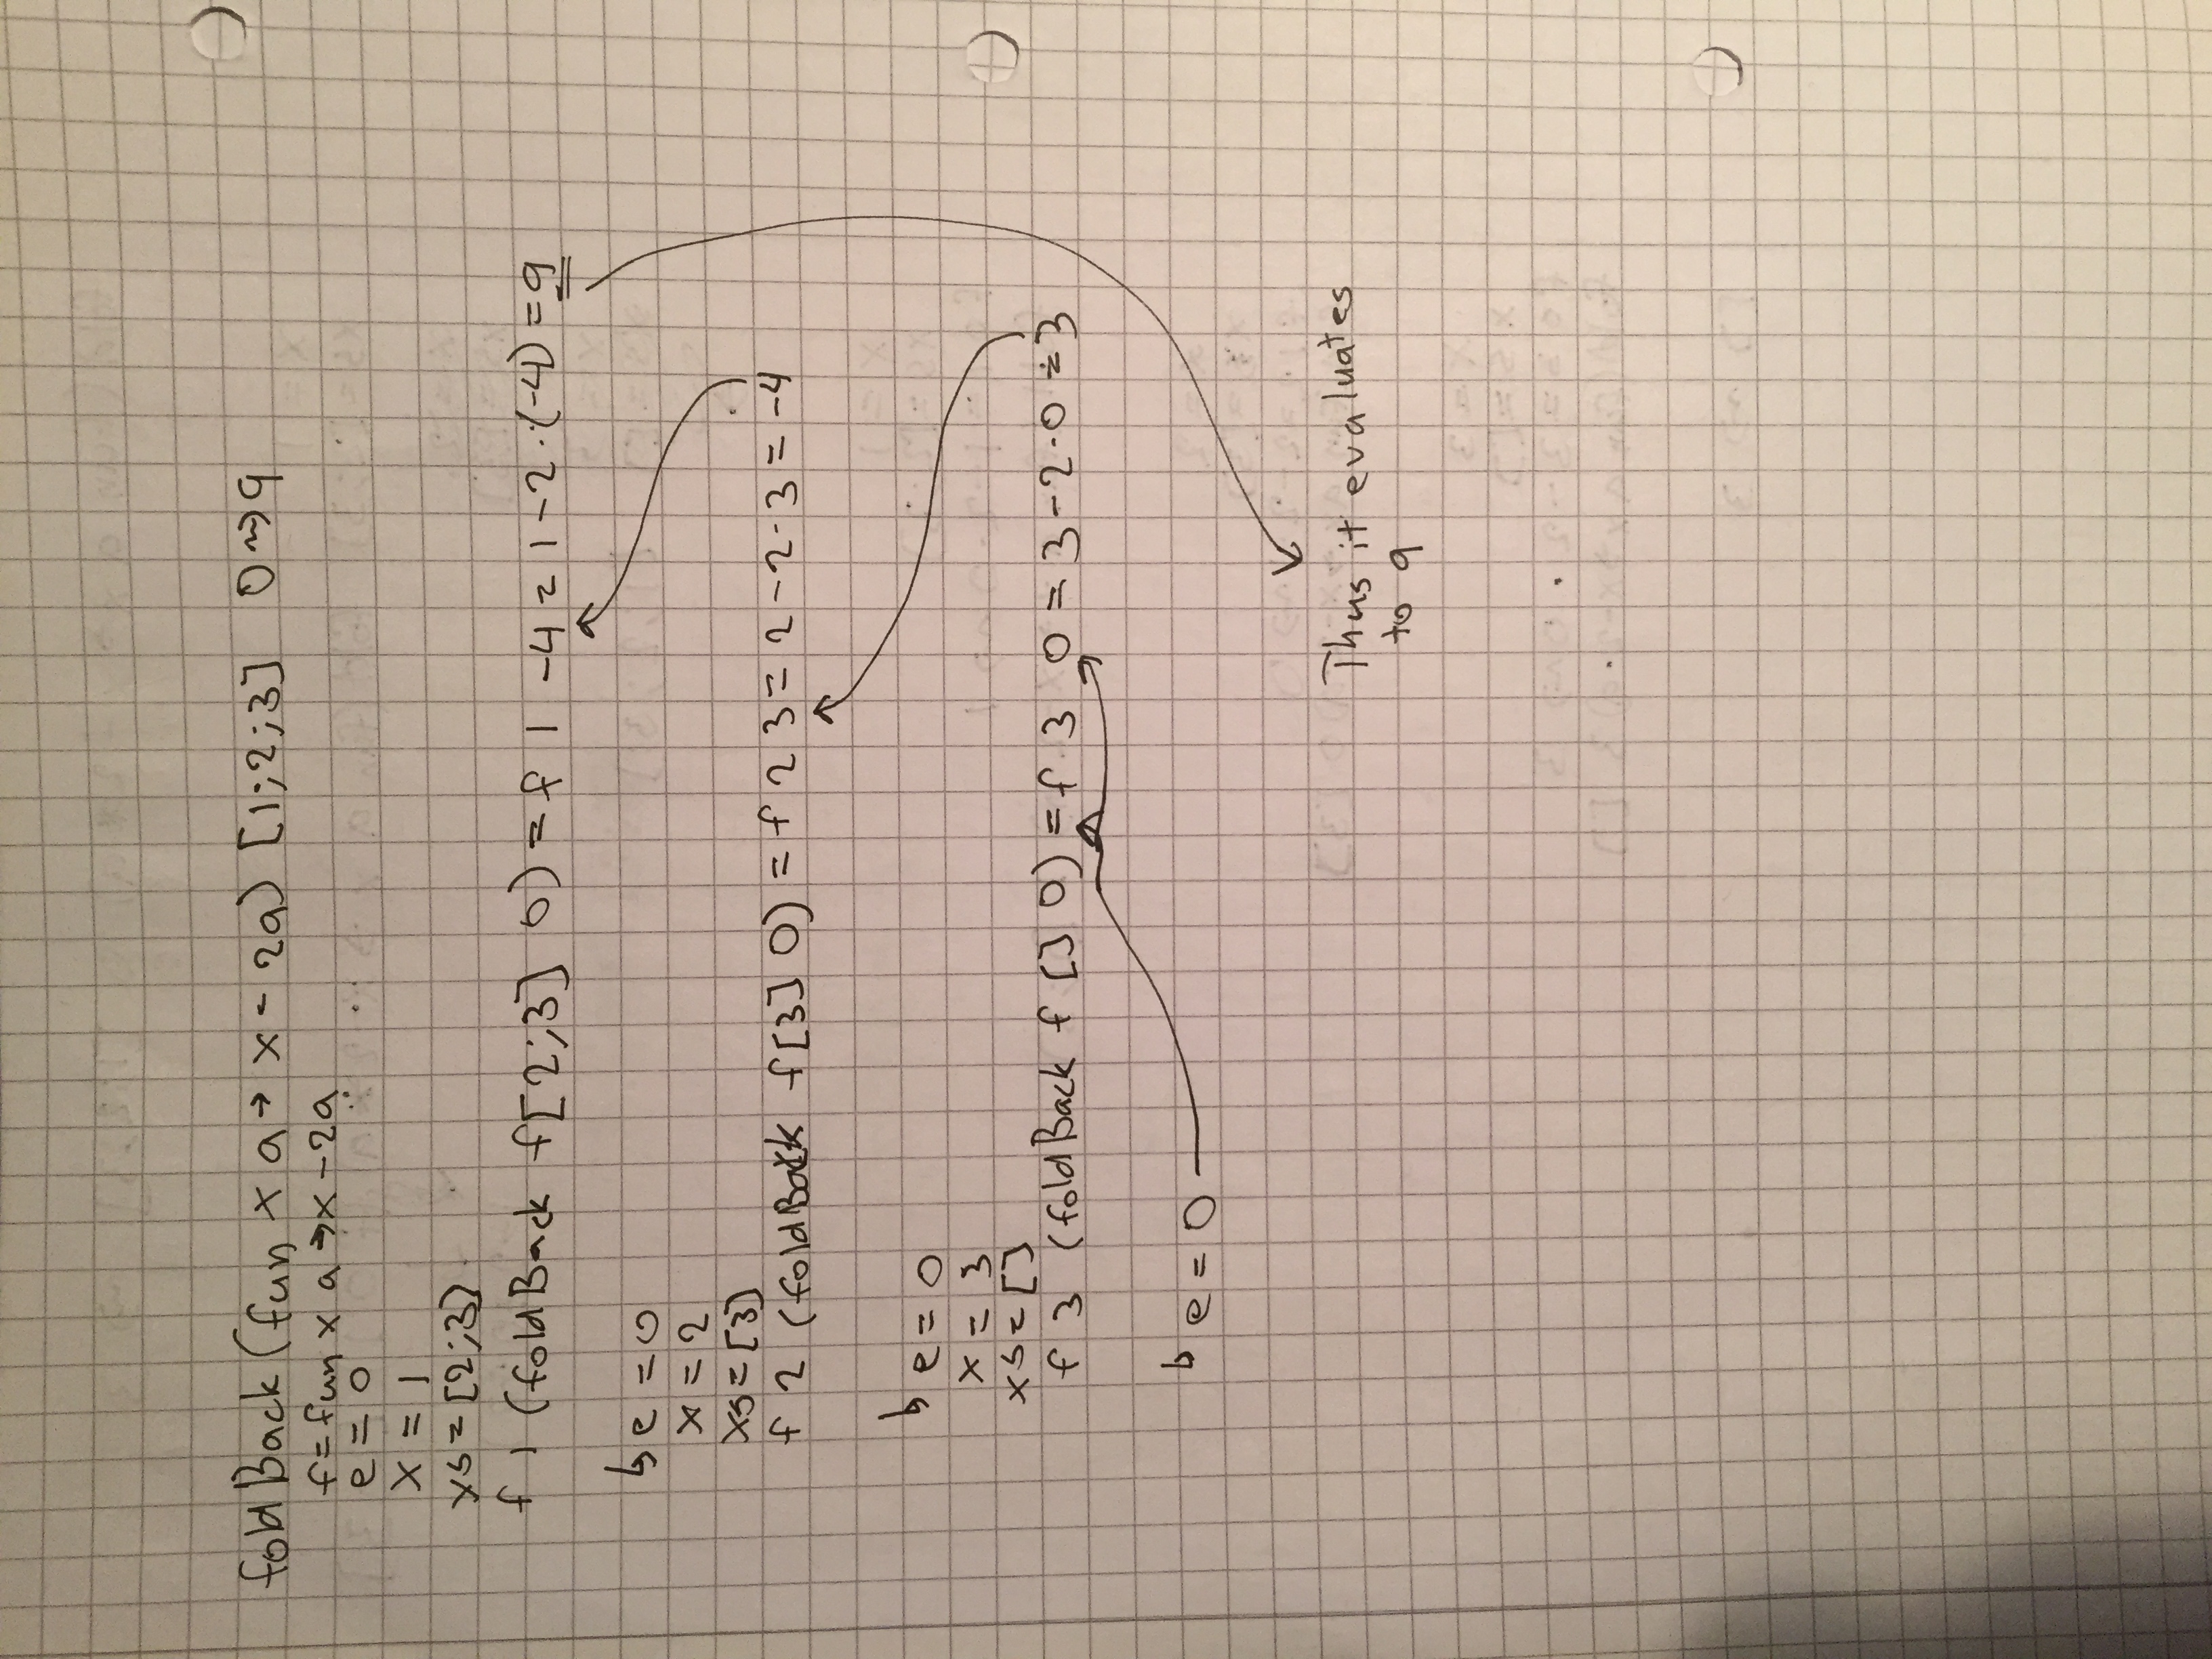 foldBack (fun x a → x - 2a) [1;2;3] 0 ⇝ 9
f = fun x a → x - 2a
e = 0
x = 1
xs = [2;3]
f 1 (foldBack f [2;3] 0) = f 1 -4 = 1 - 2 · (-4) = 9
↳ e = 0
x = 2
xs = [3]
f 2 (foldBack f [3] 0) = f 2 3 = 2 - 2 · 3 = -4
↳ e = 0
x = 3
xs = []
f 3 (foldBack f [] 0) = f 3 0 = 3 - 2 · 0 = 3
↳ e = 0
Thus it evaluates
to 9